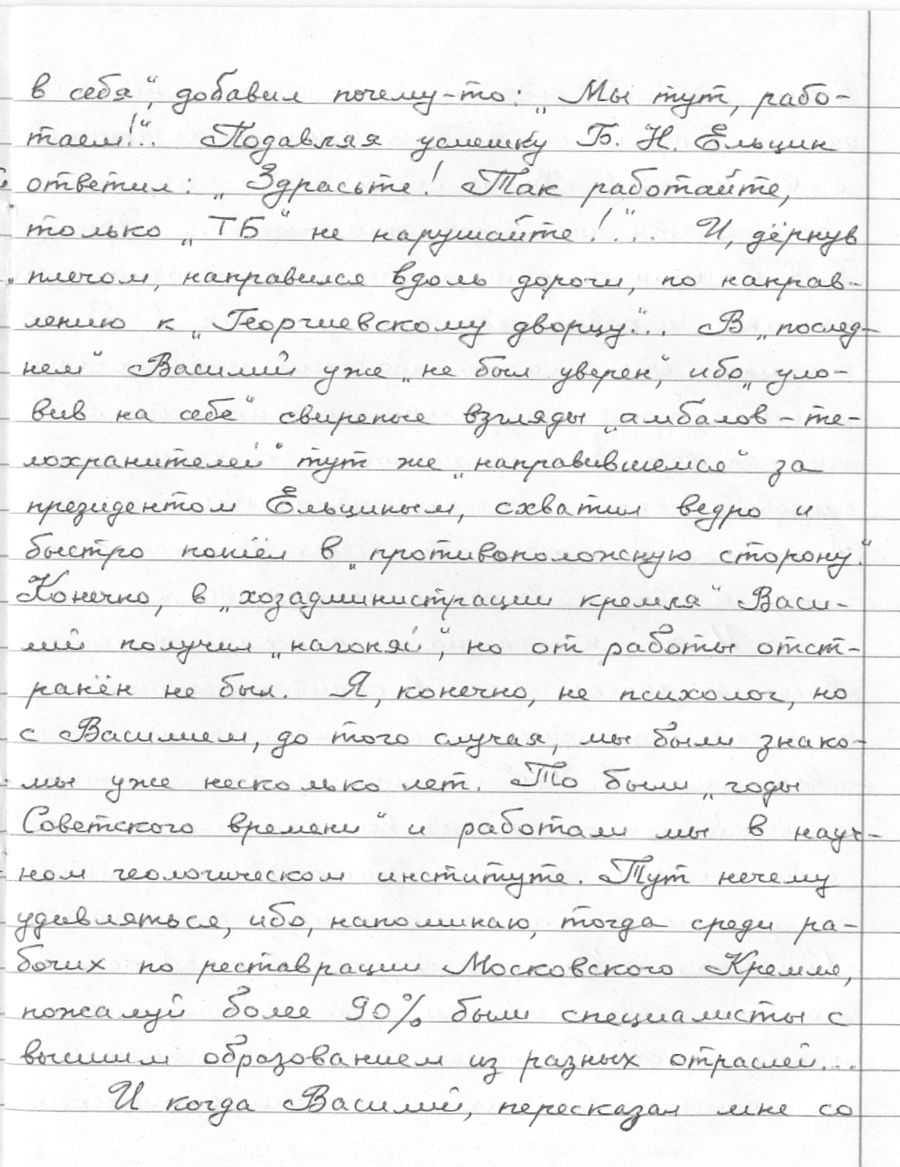 в себя“, добавил почему-то: „Мы тут, рабо-
таем!“.. Подавляя усмешку Б. Н. Ельцин
ответил: „Здрасьте! Так работайте,
только „ТБ“ не нарушайте!“... И, дёрнув
плечом, направился вдоль дороги, по направ-
лению к „Георгиевскому дворцу“... В „послед-
нем“ Василий уже „не был уверен“, ибо „уло-
вив на себе“ свирепые взгляды „амбалов-те-
лохранителей“ тут же „направившемся“ за
президентом Ельциным, схватил ведро и
быстро пошёл в „противоположную сторону“.
Конечно, в „хозадминистрации кремля“ Васи-
лий получил „нагоняй“, но от работы отст-
ранён не был. Я, конечно, не психолог, но
с Василием, до того случая, мы были знако-
мы уже несколько лет. То были „годы
Советского времени“ и работали мы в науч-
ном геологическом институте. Тут нечему
удивляться, ибо, напоминаю, тогда среди ра-
бочих по реставрации Московского Кремля,
пожалуй более 90% были специалисты с
высшим образованием из разных отраслей...
И когда Василий, пересказал мне со